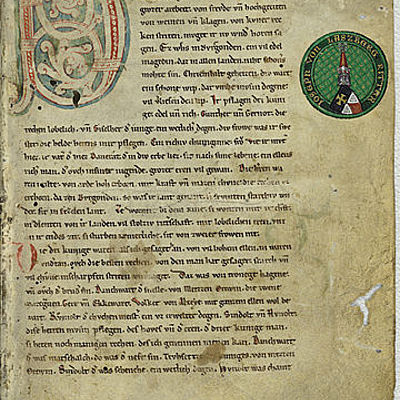 grozer arebeit. von freude vn hochgeciten
von weinen vn klagen. von kuner rec
ken striten. muget ir nv wnd horen sa
gen. Ez whs in Bvrgonden. ein vil edel
magedin. daz in allen landen. niht schoners
mohte sin. Chriemhilt geheizen. div wart
ein schone wip. dar vmbe mvsin degene
vil verliesen den lip. Ir pflagen dri kuni
ge edel vn rich. Gunther vn Gernot. die
rechen lobelich. vn Giselher d iunge. ein wetlich degen. div frowe was ir swe
ster. die helde hetens inir pflegen. Ein richiv chuniginne. frov vte ir mvt
hiez. ir vater d hiez Dancrat. d in div erbe liez. sit nach sime lebene. ein ellens
rich man. d ovch in siner iugende. grozer eren vil gewan. Die herren wa
ren milte. von arde hoh erborn. mit kraft vn mazen chvene. die rechen vz
erchorn. da zen Bvrgonden. so was ir lant genant. si frvmten starchiv wn
der. sit in Etzelen lant. Ze Wormez bi dem Rine. si wonten mit ir chraft.
in dienten von ir landen. vil stolziv ritterschaft. mit lobelichen eren. vnz
an ir endes zit. si sturben iæmerliche. sit von zweier frowen nit.
Die dri kunige waren. als ich gesaget han. von vil hohem ellen. in waren
undertan. ovch die besten rechen. von den man hat gesaget. starch vn
vil chvene. in scharpfen striten vnverzaget. Daz was von Tronege Hagene.
vn ovch d brud sin. Danchwart d snelle. von Mezzen Ortwin. die zwene
marcgraven. Gere vn Ekkewart. Volker von Alzeye. mit ganzem ellen wol be
wart. Rvmolt d chvchenmeist. ein vz erwelter degen. Sindolt vn Hvnolt.
dise herren mvsin pflegen. des hoves vn d eren. d drier kunige man.
si heten noch manigen rechen. des ich genennen niht kan. Danchwart
d was marschalch. do was d nefe sin. Truhsetze des kuniges. von Mezzen
Ortwin. Sindolt d was schenche. ein wetlich degen. Hvnolt was cham
IOSEPH VON LASZBERG RITTER